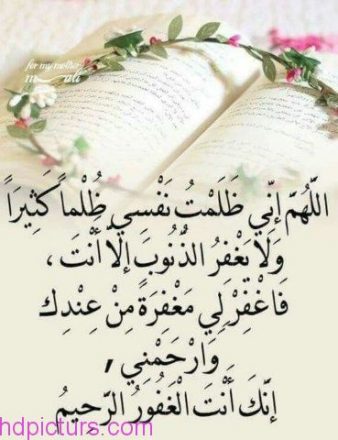 for my mother
اللَّهُمَّ إِنِّي ظَلَمْتُ نَفْسِي ظُلْماً كَثِيرَاً
وَلَا يَغْفِرُ الذُّنُوبَ إِلاَّ أَنْتَ ،
فَاغْفِرْ لِي مَغْفِرَةً مِنْ عِنْدِكَ
وَارْحَمْنِي ,
إِنَّكَ أَنْتَ الْغَفُورُ الرَّحِيمُ
hdpicturs.com